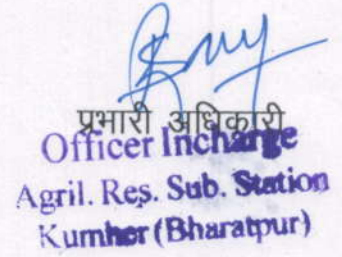 प्रभारी अधिकारी
Officer Incharge
Agril. Res. Sub. Station
Kumher (Bharatpur)